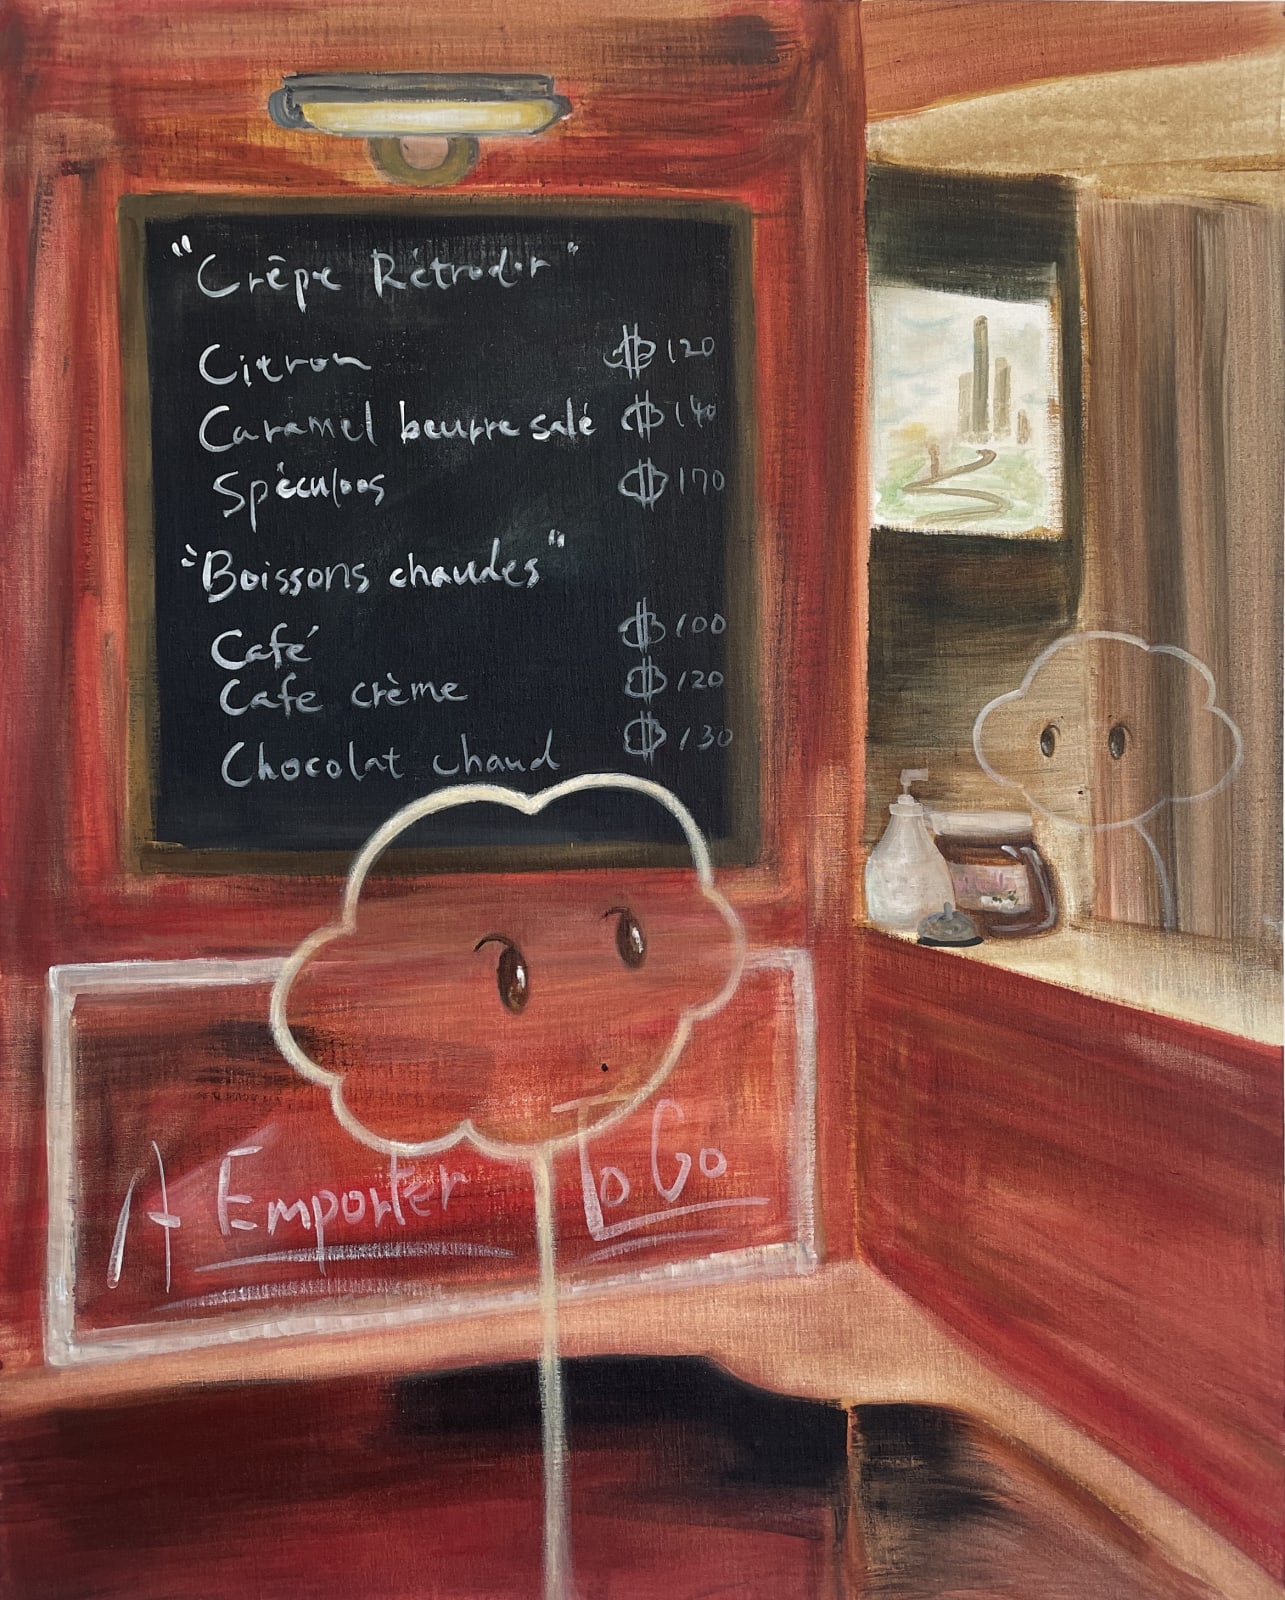 "Crêpe Rétrodor"
Citron $120
Caramel beurre salé $140
Spéculoos $170
"Boissons chaudes"
Café $100
Cafe crème $120
Chocolat chaud $130
A Emporter To Go